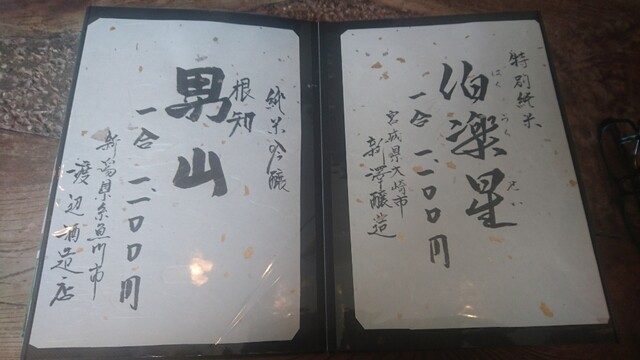 特別純米
伯楽星
はくらくせい
一合 一、一〇〇円
宮城県大崎市
新澤醸造
純米吟醸
根知
男山
一合 一、一〇〇円
新潟県糸魚川市
渡辺酒造店